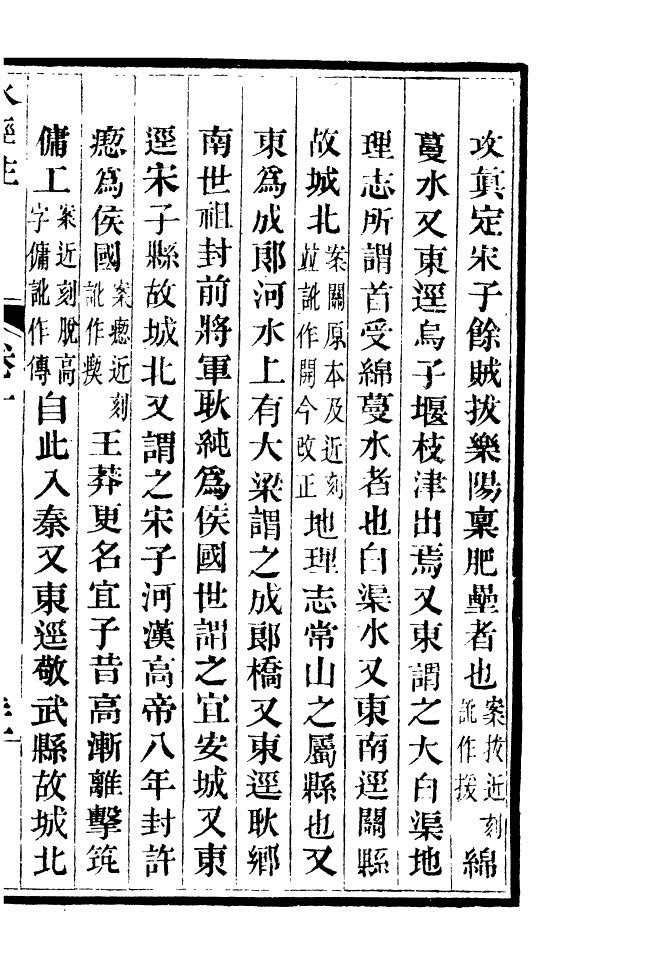 攻真定宋子餘賊拔樂陽稟肥壘者也案拔近刻訛作援綿
蔓水又東逕烏子堰枝津出焉又東謂之大白渠地
理志所謂首受綿蔓水者也白渠水又東南逕關縣
故城北案關原本及近刻竝訛作開今改正地理志常山之屬縣也又
東為成郎河水上有大梁謂之成郎橋又東逕耿鄉
南世祖封前將軍耿純爲侯國世謂之宜安城又東
逕宋子縣故城北又謂之宋子河漢高帝八年封許
瘛爲侯國案瘛近刻訛作㢞王莽更名宜子昔高漸離擊筑
傭工案近刻脫高字傭訛作傳自此入秦又東逕敬武縣故城北
水經注 卷十